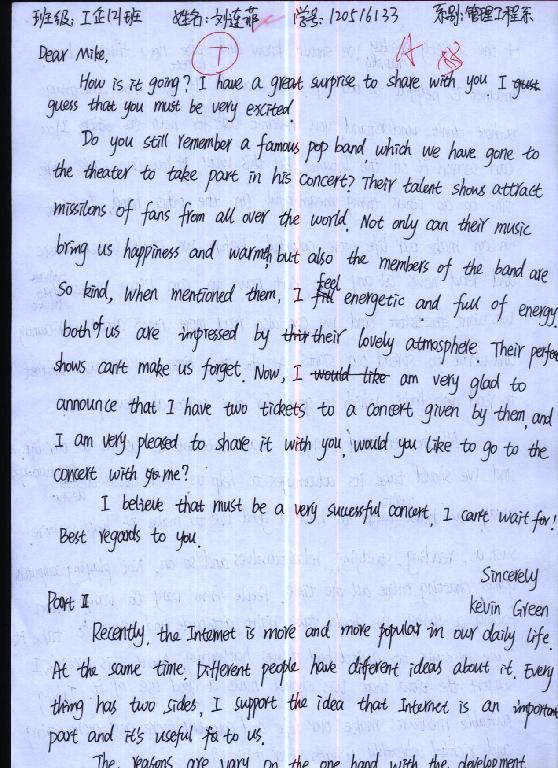 班级: 工企121班 姓名: 刘莲 学号: 120516133 系别: 管理工程系
T A
Dear Mike,
How is it going? I have a great surprise to share with you I gust
guess that you must be very excited.
Do you still remember a famous pop band which we have gone to
the theater to take part in his concert? Their talent shows attract
missilons of fans from all over the world. Not only can their music
bring us happiness and warmth, but also the members of the band are
so kind, when mentioned them, I feel energetic and full of energy
both of us are impressed by thir their lovely atmosphere. Their perfe
shows can't make us forget. Now, I would like am very glad to
announce that I have two tickets to a concert given by them, and
I am very pleased to share it with you, would you like to go to the
concert with yo me?
I believe that must be a very successful concert, I can't wait for!
Best regards to you.
Sincerely
Kevin Green
Part II
Recently, the Internet is more and more popular in our daily life.
At the same time, Different people have different ideas about it. Every
thing has two sides, I support the idea that Internet is an important
part and it's useful fo to us.
The reasons are vary on the one hand with the development